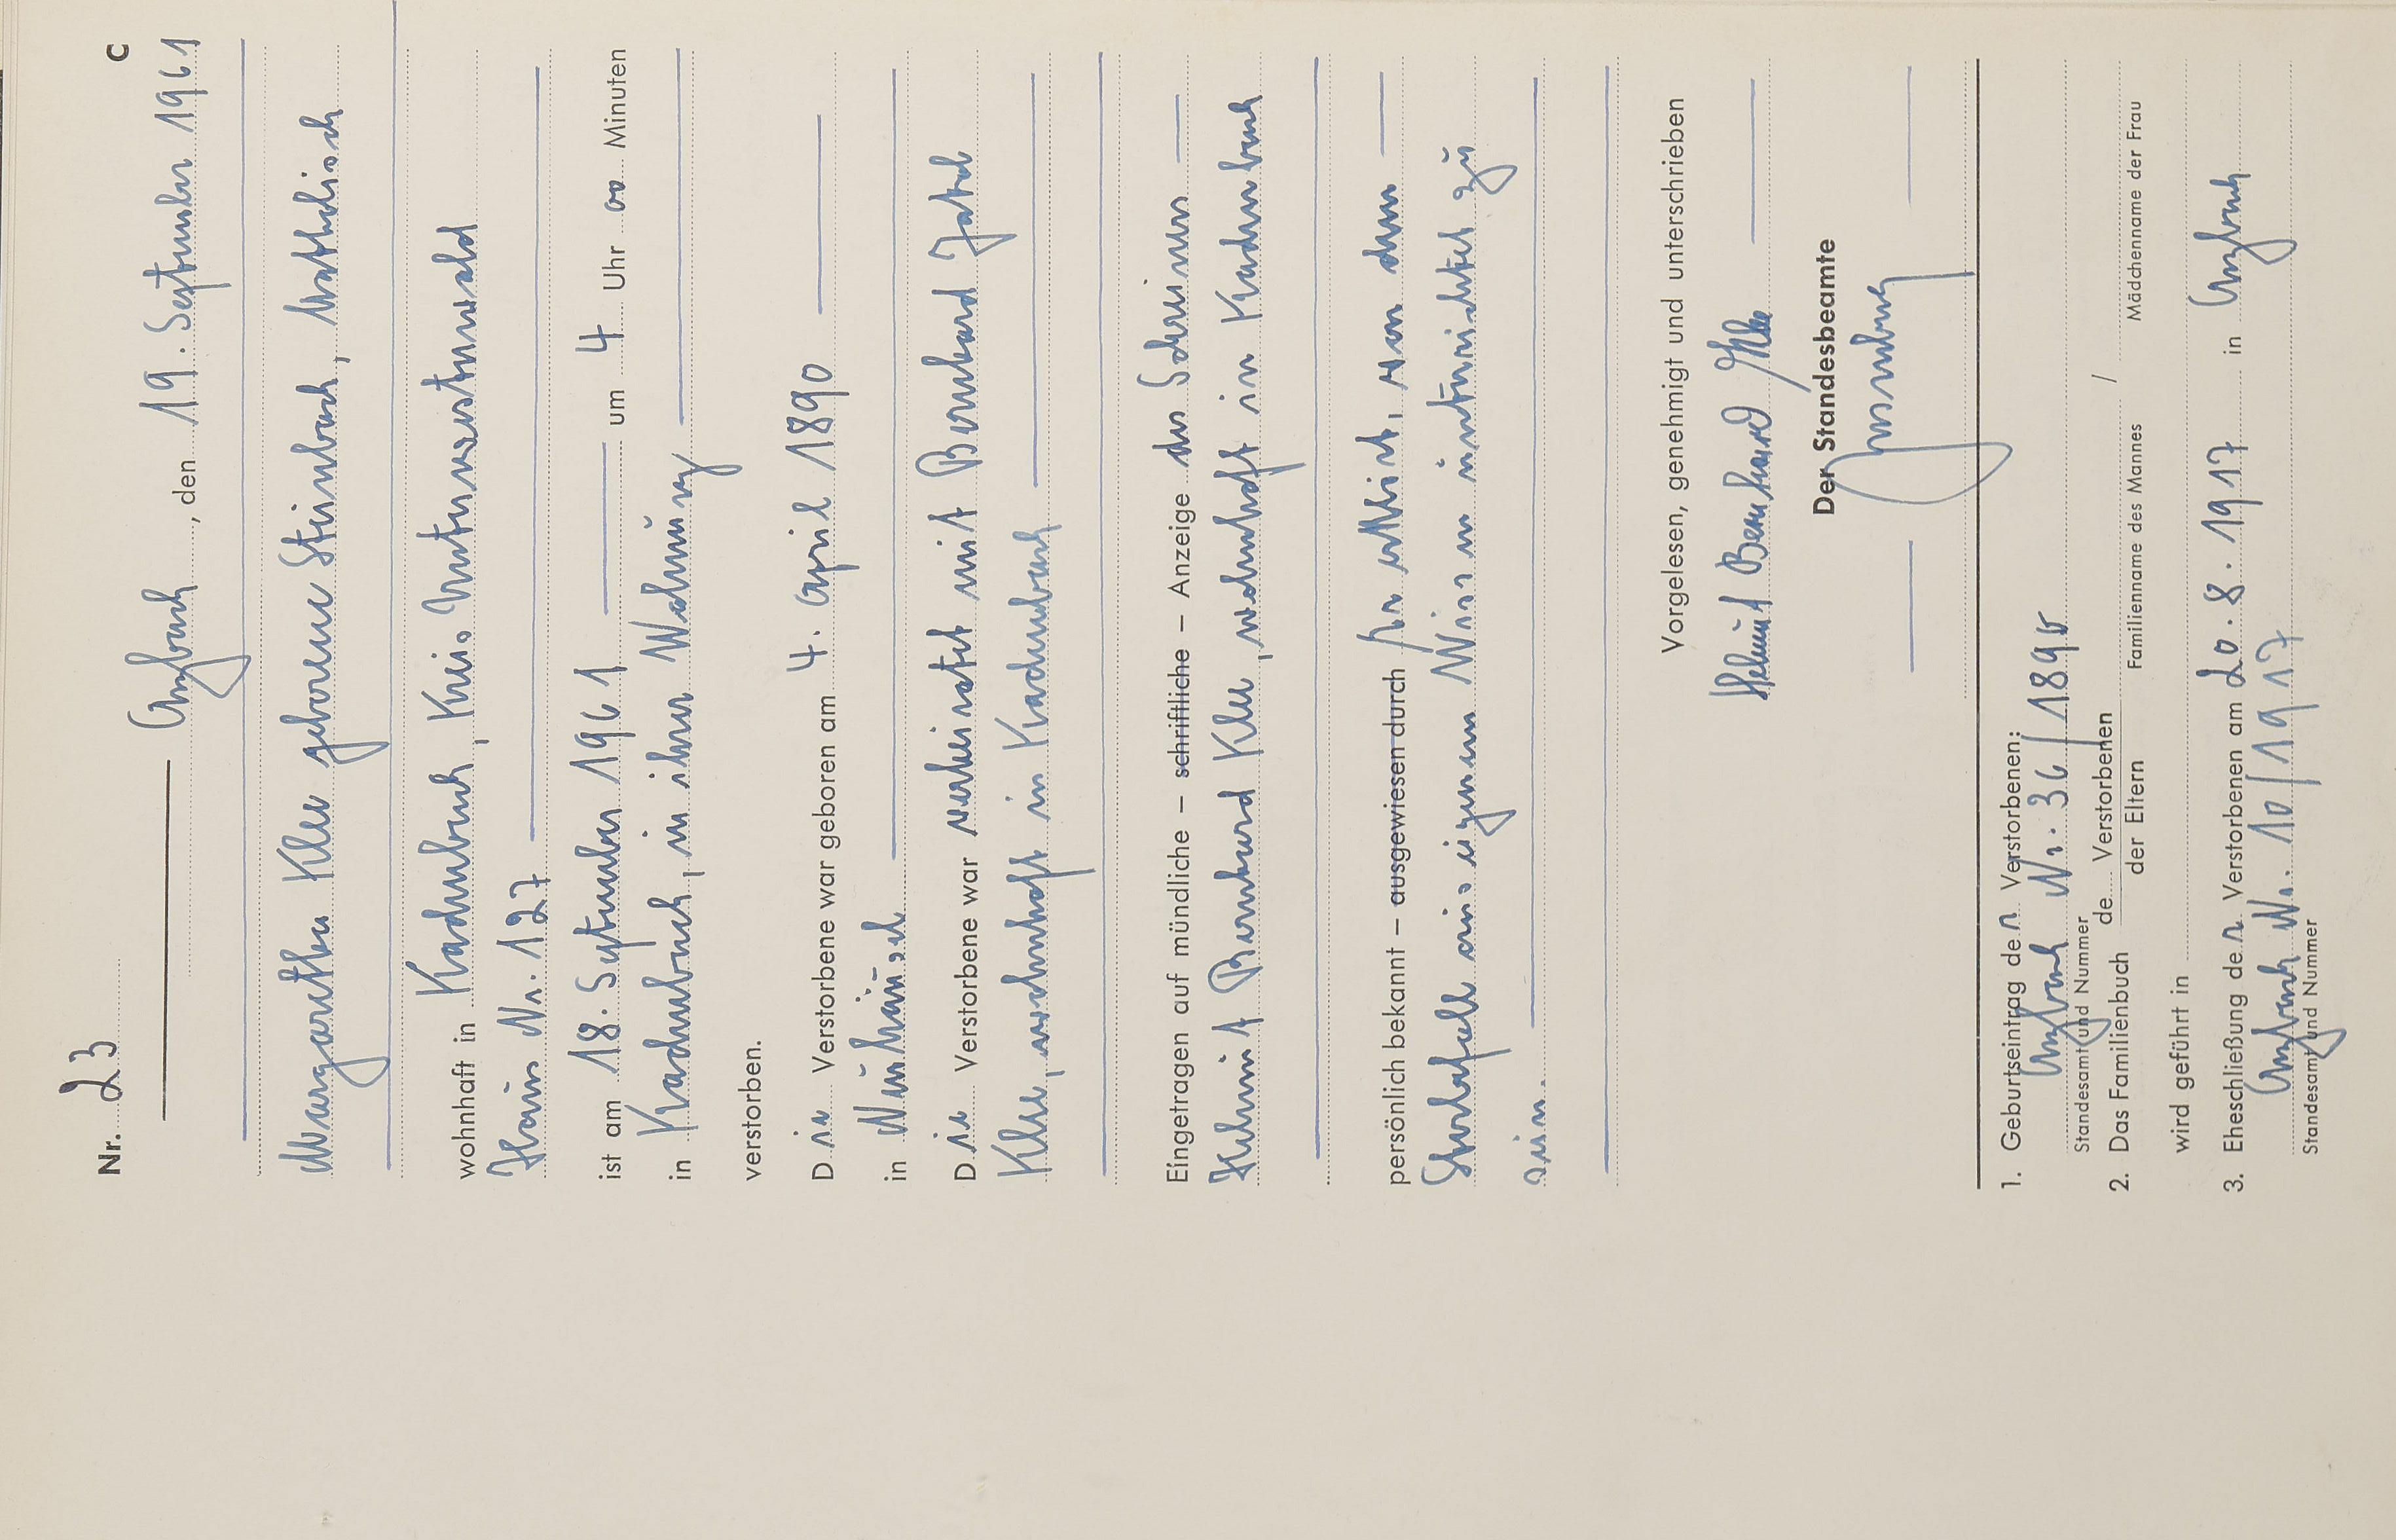 Nr. 23 C
Anzbach, den 19. September 1961
Margaretha Klee geborene Steinbach, katholisch
wohnhaft in Kadenbach, Kreis Unterwesterwald
Haus Nr. 127
ist am 18. September 1961 um 4 Uhr 00 Minuten
in Kadenbach, in ihrer Wohnung
verstorben.
Die Verstorbene war geboren am 4. April 1890
in Neuhäusel
Die Verstorbene war verheiratet mit Bernhard Jakob
Klee, wohnhaft in Kadenbach
Eingetragen auf mündliche – schriftliche – Anzeige des Schreiners
Helmut Bernhard Klee, wohnhaft in Kadenbach
persönlich bekannt – ausgewiesen durch Er erklärt, von dem
Sterbefall aus eigenem Wissen unterrichtet zu
sein.
Vorgelesen, genehmigt und unterschrieben
Helmut Bernhard Klee
Der Standesbeamte
1. Geburtseintrag der Verstorbenen:
Nr. 36/1890
Standesamt und Nummer
2. Das Familienbuch de Verstorbenen
der Eltern
Familienname des Mannes / Mädchenname der Frau
wird geführt in
3. Eheschließung der Verstorbenen am 20. 8. 1917 in
Nr. 10/1917
Standesamt und Nummer